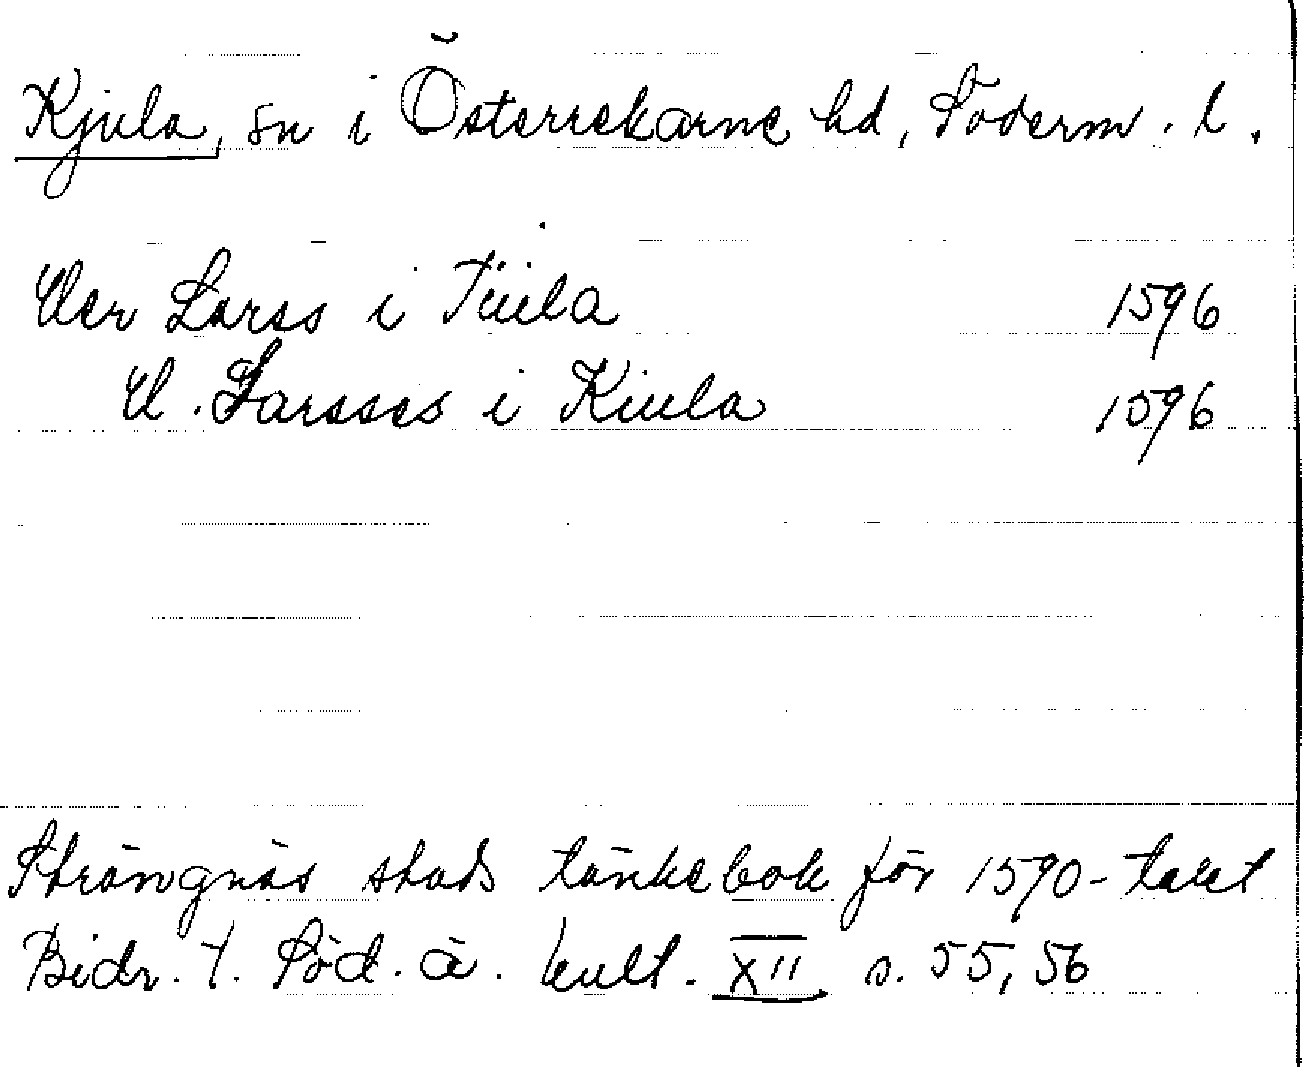 Kjula, sn i Österrekarne hd, Söderm. l.
Oler Larss i Tiula 1596
O. Larsses i Kiula 1596
Strängnäs stads tänkebok för 1590-talet
Bidr. t. Söd. ä. kult. XII s. 55, 56